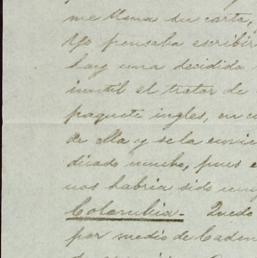 me llama su carta,
Yo pensaba escribir
hay una decidida
inutil el tratar de
paquete ingles, en c
de Ma y se la envie
dicado mucho, pues e
nos habria sido muy
Colombia - Quedo
por medio de Caden